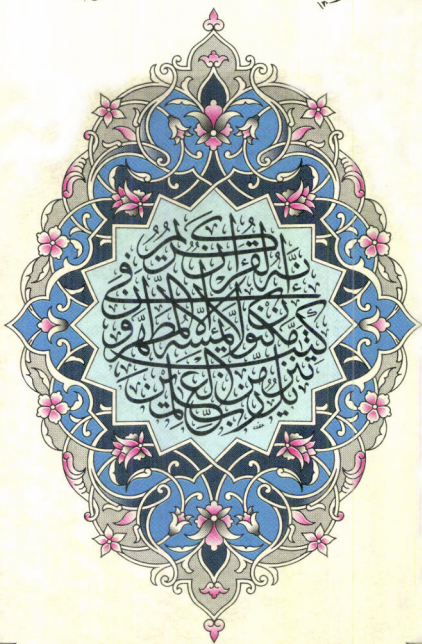 إنه لقرآن كريم
في كتب مكنون لا يمسه إلا المطهرون
تنزيل من رب العالمين